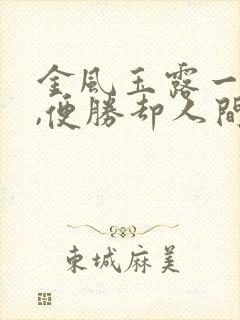 金風玉露一
,便勝却人間
東城麻美